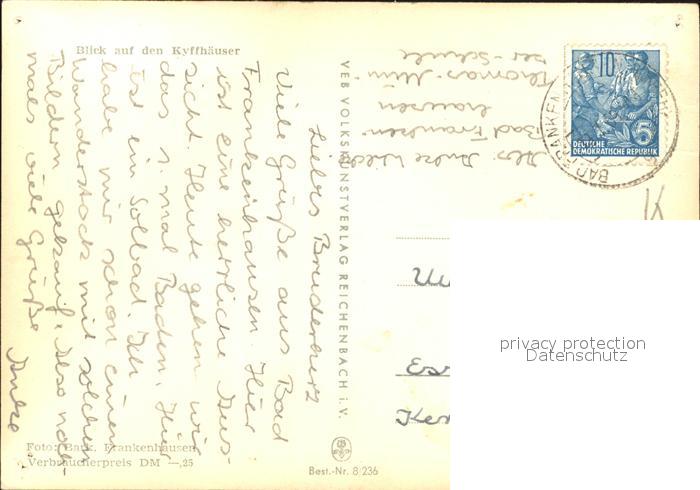 Blick auf den Kyffhäuser
Liebes Bruderherz
Viele Grüße aus Bad
Frankenhausen. Hier
ist eine herrliche Aus-
sicht. Heute gehen wir
das 1. mal Baden. Hier
ist ein Solbad. Ich
habe mir schon einen
Wanderstock mit solchen
Bildern gekauft. Also noch-
mals viele Grüße
Antke
Foto: Bark, Frankenhausen
Verbraucherpreis DM —,25
VEB VOLKSKUNSTVERLAG REICHENBACH i. V.
Best.-Nr. 8/236
Abs. Antke
Bad Franken-
hausen
Thomas-Mün-
zer-Schule
10
5
DEUTSCHE
DEMOKRATISCHE REPUBLIK
BAD FRANKENHAUSEN
Ker
privacy protection
Datenschutz